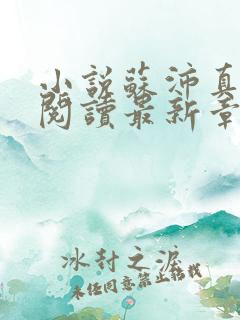 小說蘇沛真
閱讀最新章
冰封之淚
未經同意禁止轉載